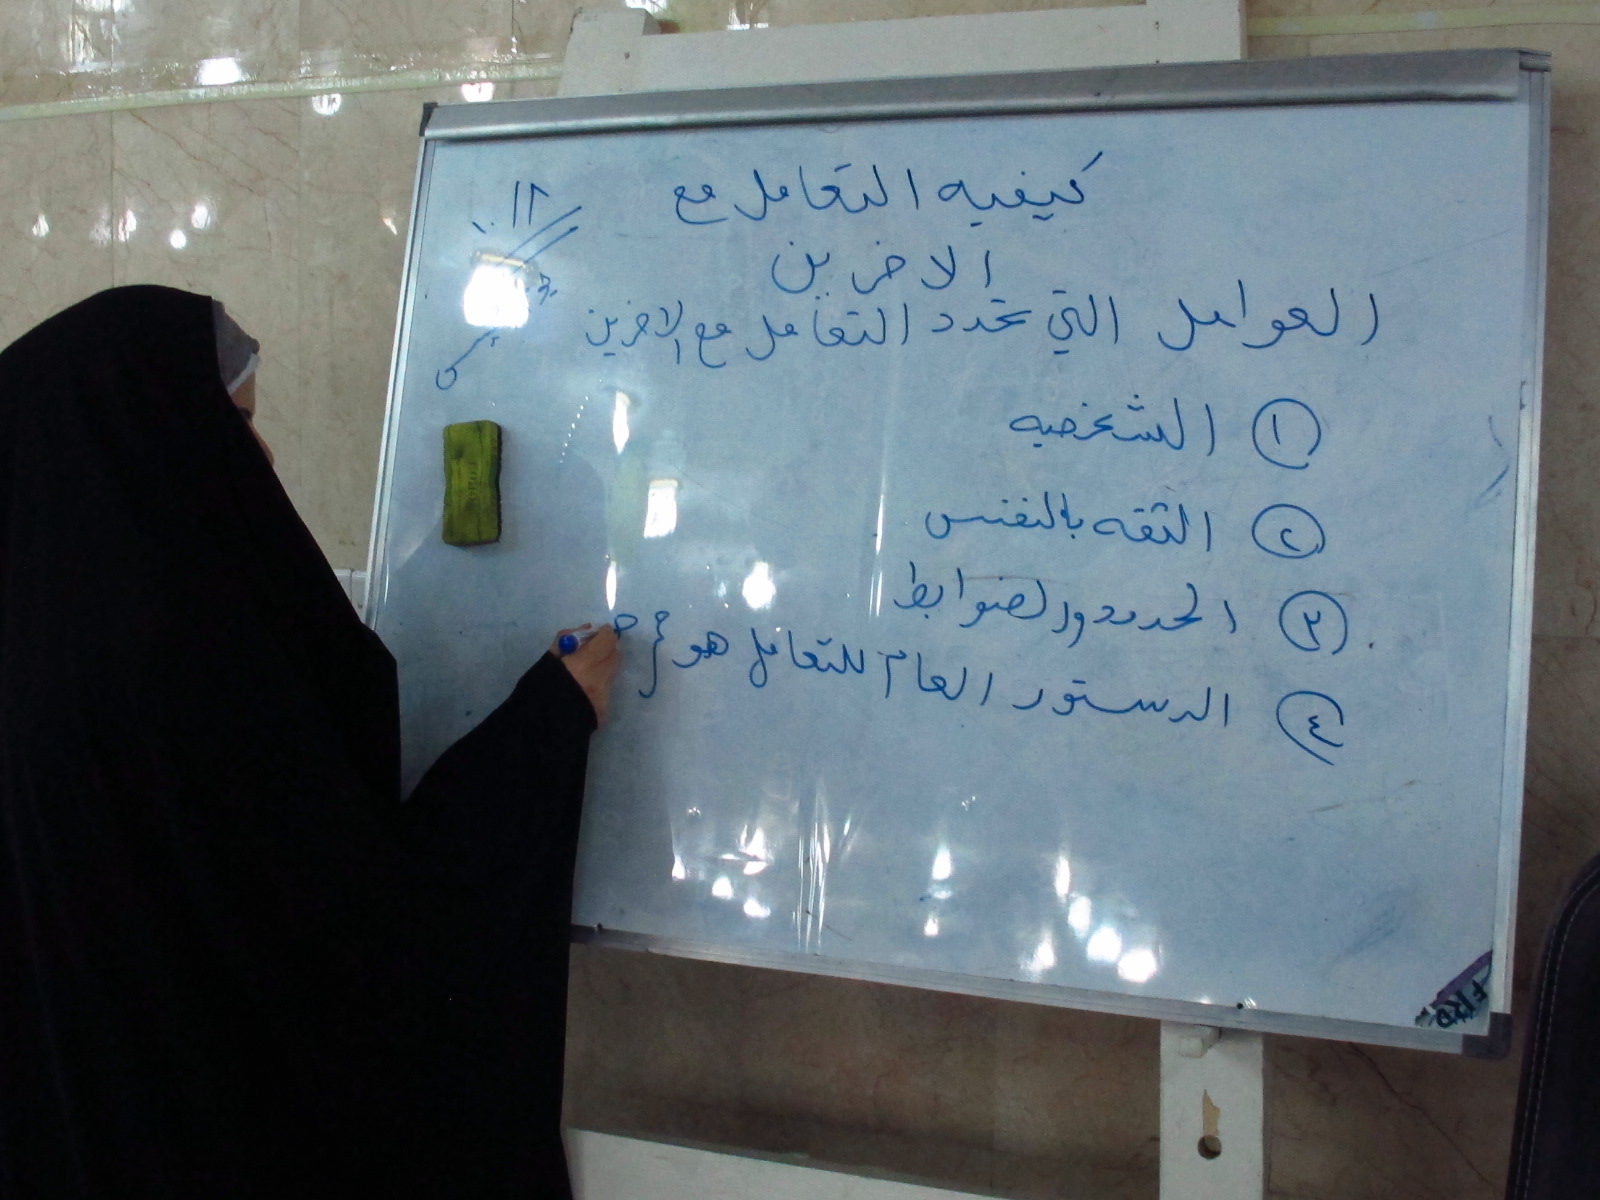 كيفيه التعامل مع
الاخرين
العوامل التي تحدد التعامل مع الاخرين
١ الشخصيه
٢ الثقه بالنفس
٣ الحدود والضوابط
٤ الدستور العام للتعامل هو
FRD